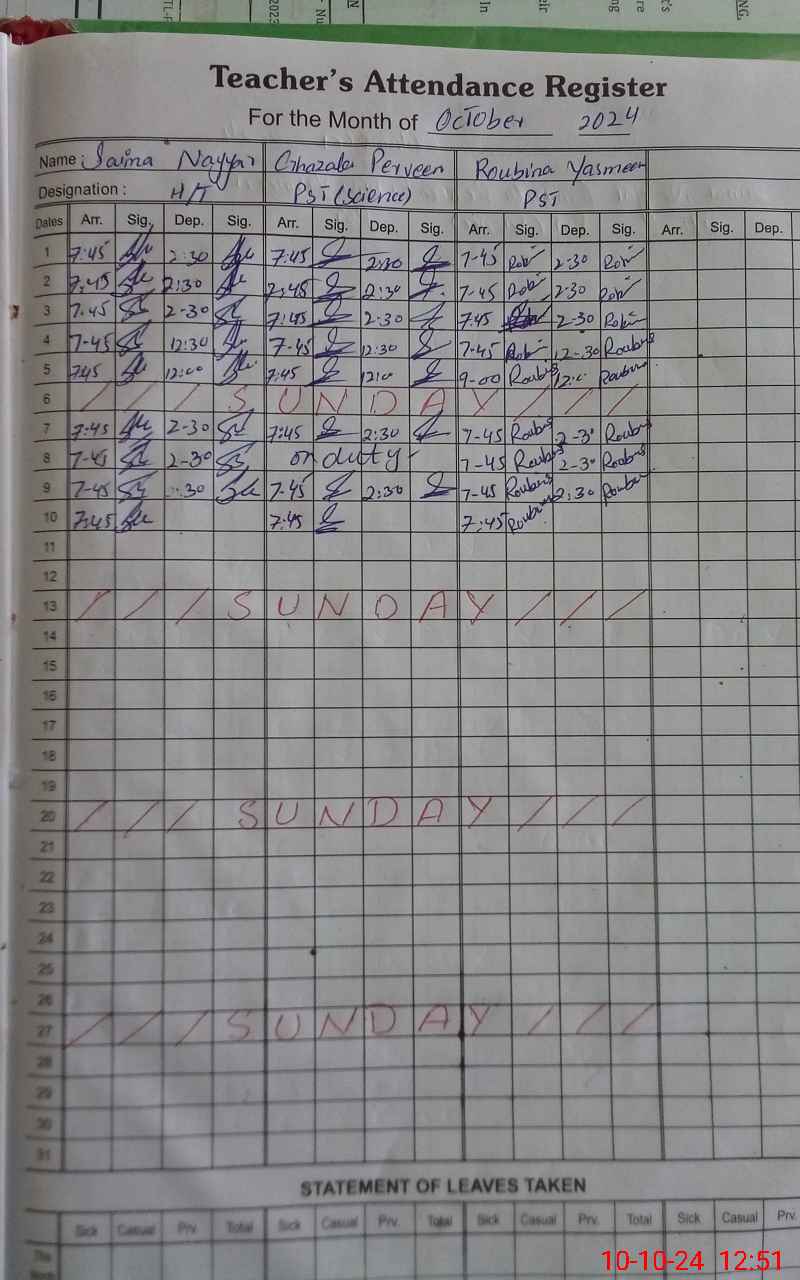 Teacher's Attendance Register
For the Month of October 2024
Name : Saima Nayyar Ghazala Perveen Roubina Yasmeen
Designation : H/T PST (Science) PST
Dates Arr. Sig. Dep. Sig. Arr. Sig. Dep. Sig. Arr. Sig. Dep. Sig. Arr. Sig. Dep.
1 7:45 2:30 7:45 2:30 7-45 2-30
2 7:45 2:30 2:45 2:30 7-45 2-30
3 7.45 2-30 7:45 2-30 7:45 2-30
4 7-45 12:30 7-45 12:30 7-45 12-30
5 7:45 12:00 7:45 9-00
6 / / / S U N D A Y / / /
7 7:45 2-30 7:45 2:30 7-45 2-30
8 7-45 2-30 on duty 7-45 2-30
9 7-45 30 7-45 2:30 7-45 2:30
10 7:45 7:45 7:45
11
12
13 / / / S U N D A Y / / /
14
15
16
17
18
19
20 / / / S U N D A Y / / /
21
22
23
24
25
26
27 / / / S U N D A Y / / /
28
29
30
31
STATEMENT OF LEAVES TAKEN
Sick Casual Prv. Total Sick Casual Prv. Total Sick Casual Prv. Total Sick Casual Prv.
10-10-24 12:51